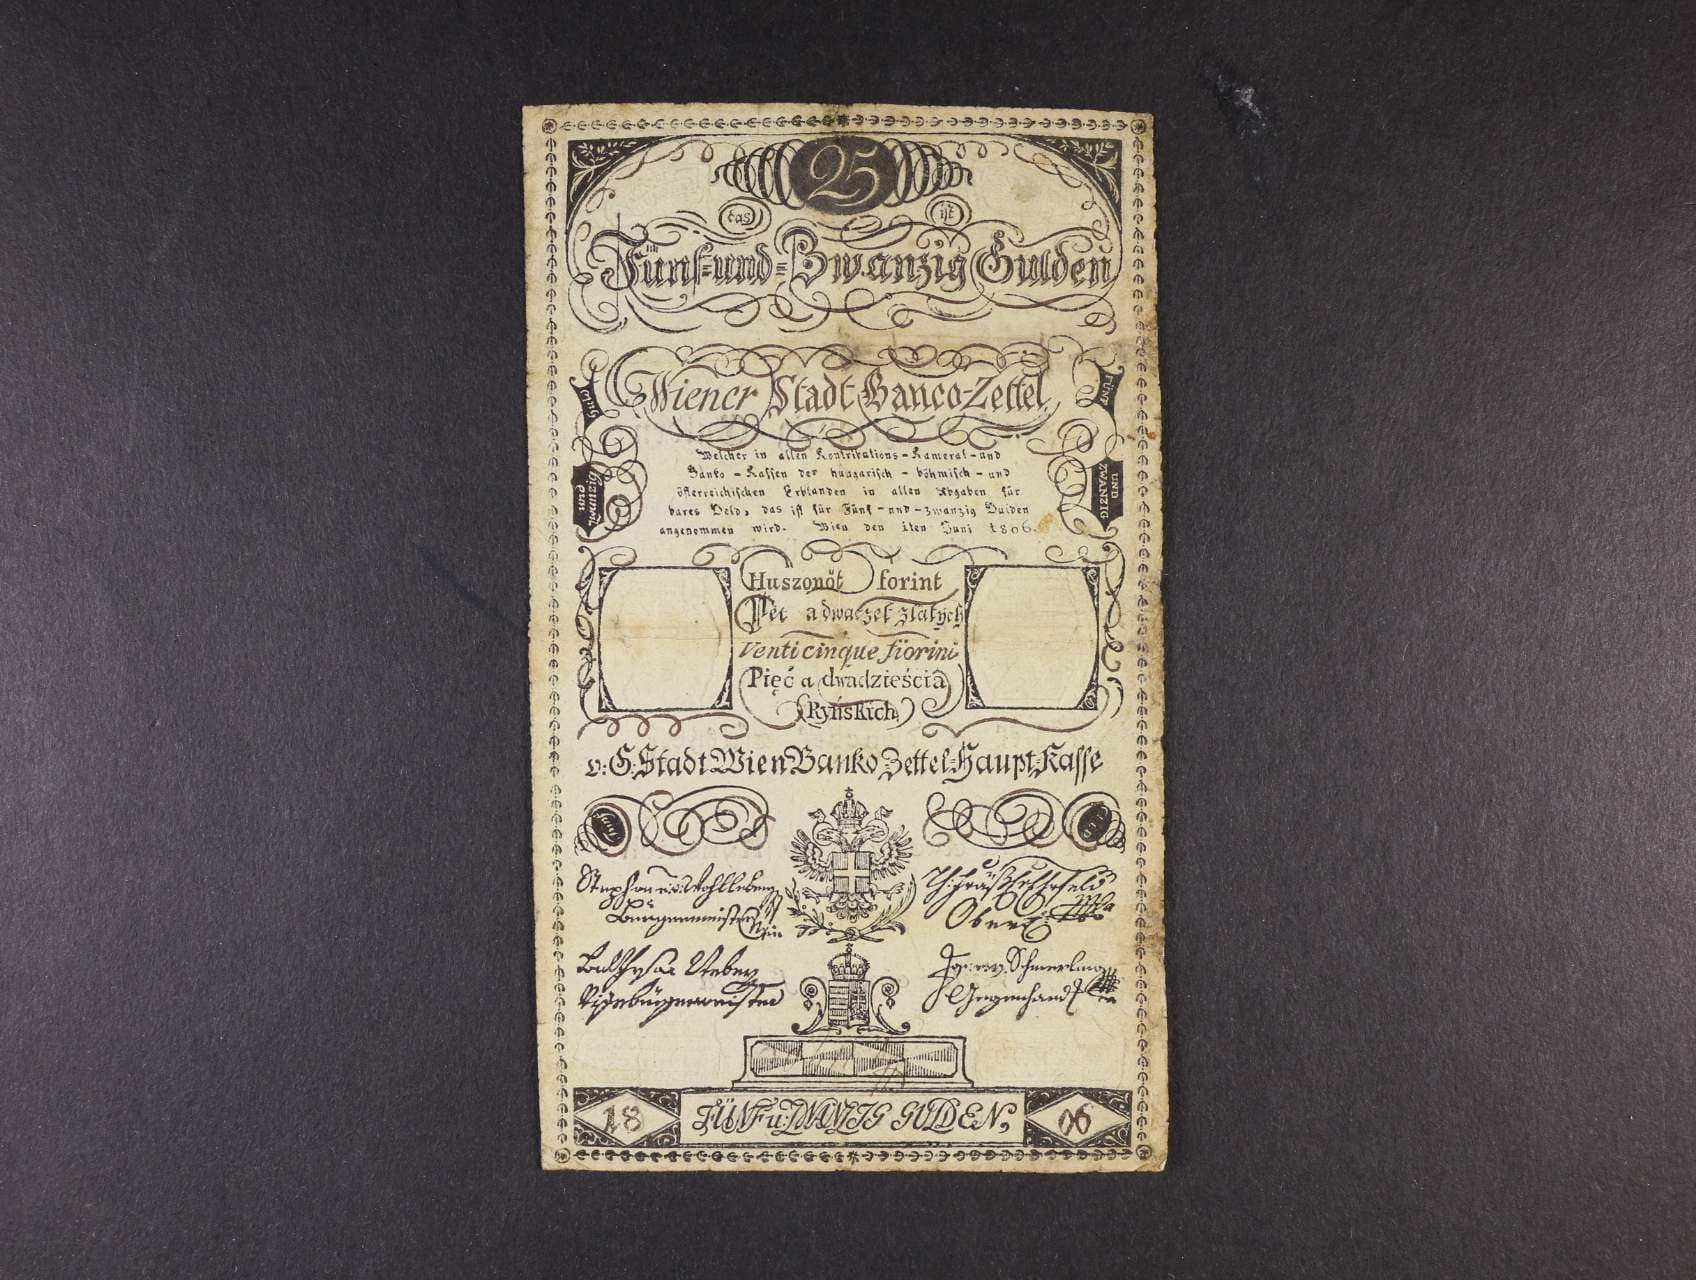 25
das ist
Fünf=und=Zwanzig Gulden
Wiener Stadt Banco-Zettel
Guld: FÜNF
Welcher in allen Kontributions-Kameral-und
Banko-Kassen der hungarisch-böhmisch-und
österreichischen Erblanden in allen Abgaben für
bares Geld, das ist für Fünf-und-zwanzig Gulden
angenommen wird. Wien den 1ten Juni 1806.
und zwanzig
UND ZWANZIG
Huszonöt forint
Pět a dwaczet zlatych
Venticinque fiorini
Pięć a dwadzieścia
Ryńskich
v: G: Stadt Wien Banko Zettel=Haupt Kasse
Stephan Wohlleben
Bürgermeister
Ober
Vizebürgermeister
Schmerling
Gegenhand
18 FÜNF u: ZWANZIG GULDEN, 06